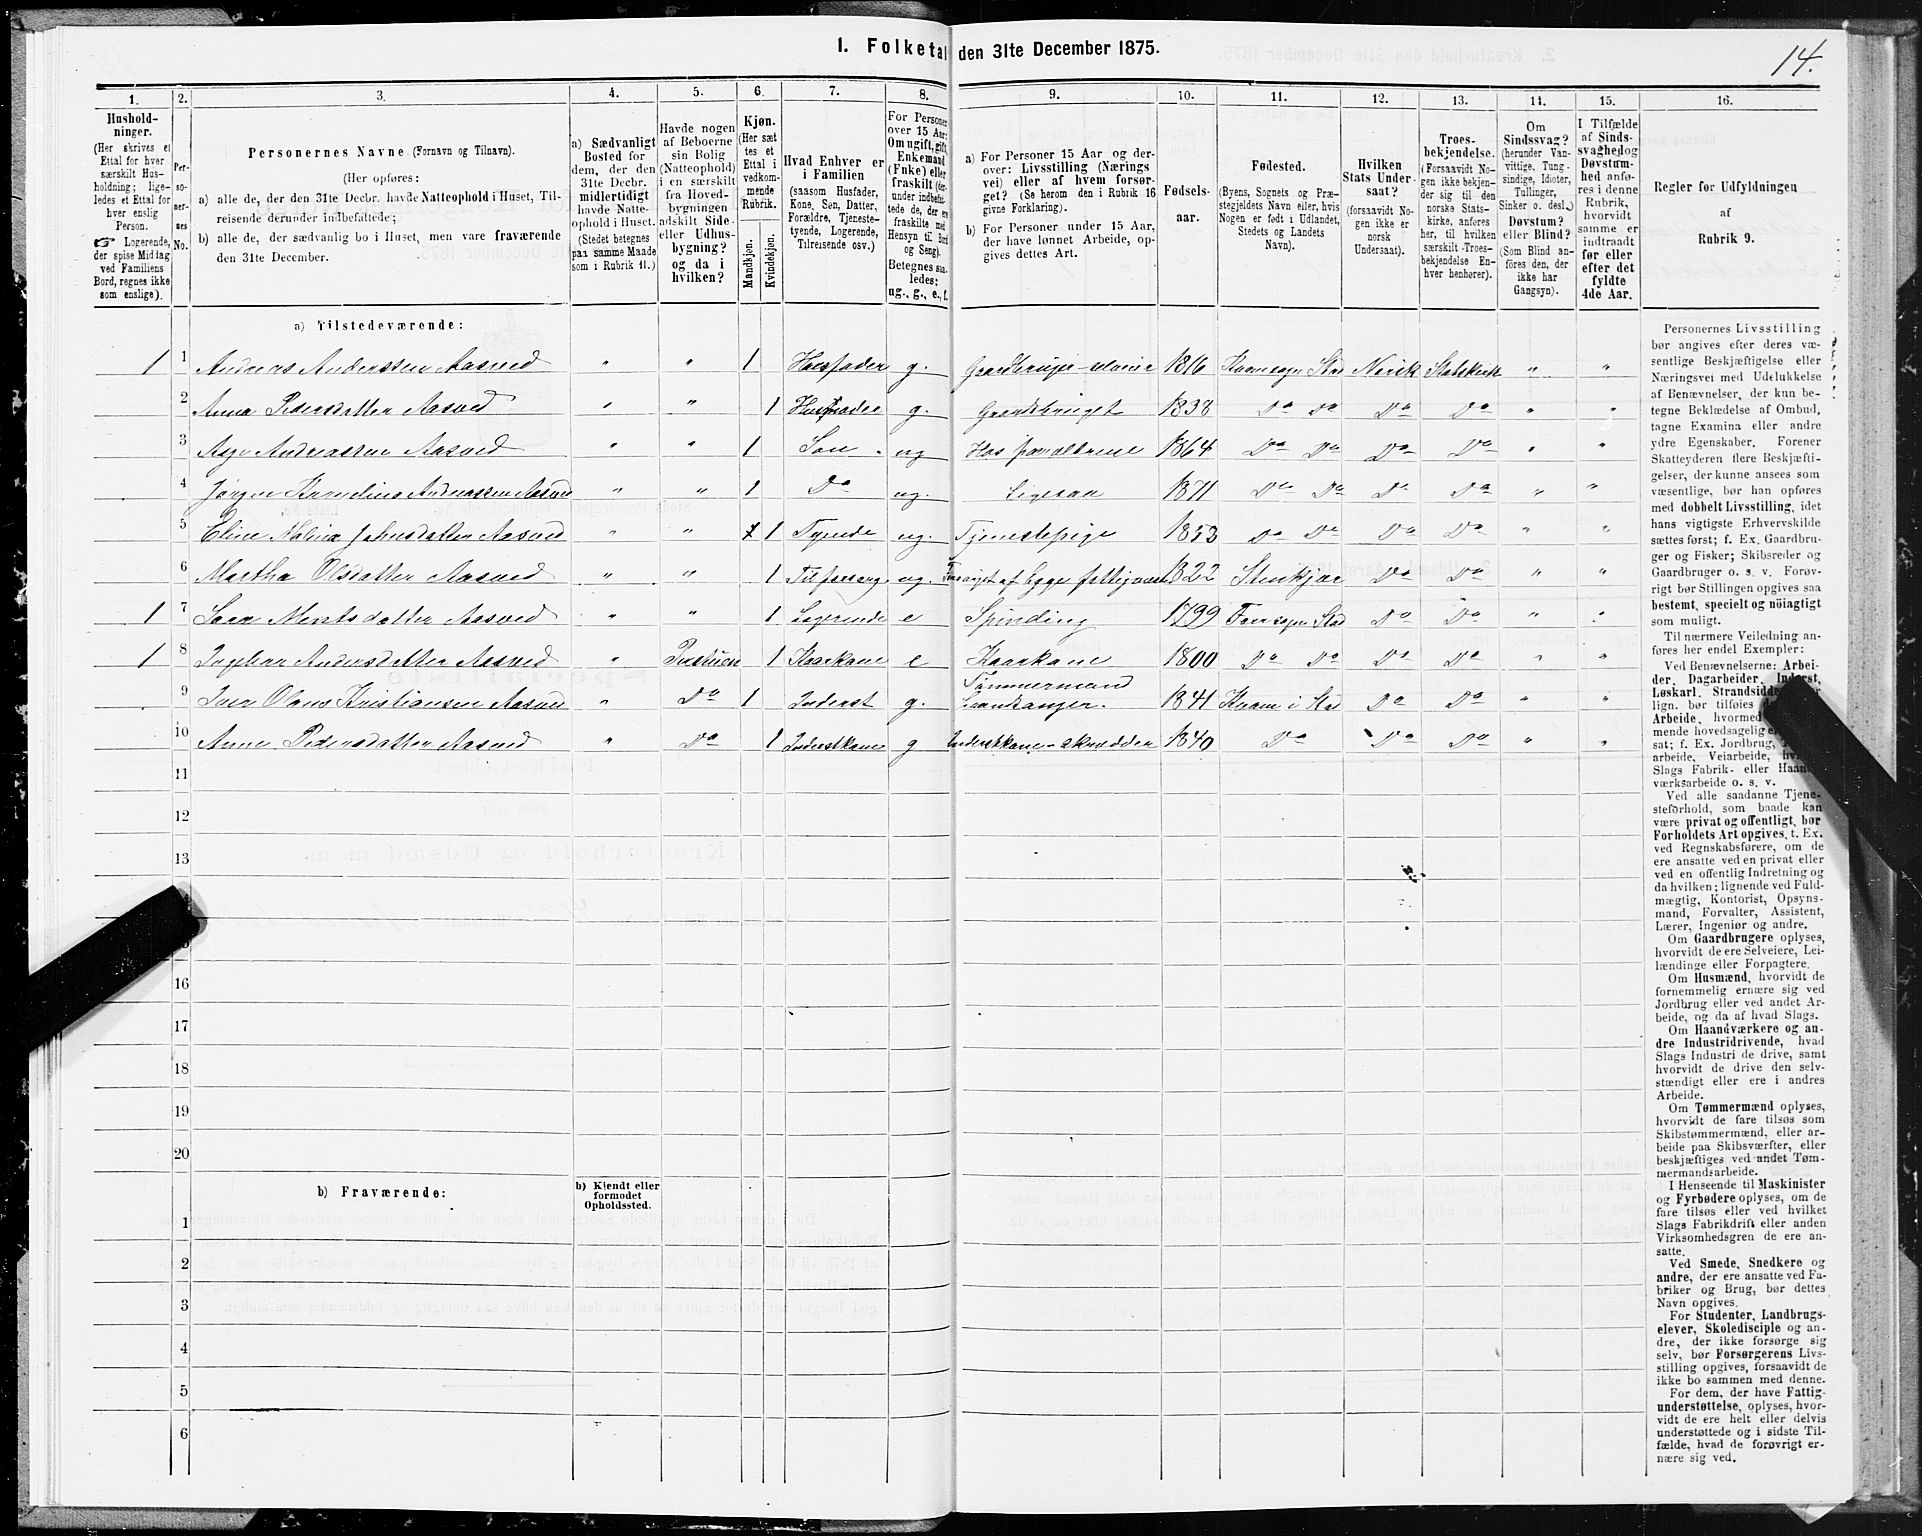 I. Folketal den 31te December 1875.
14.
1. 2. 3. 4. 5. 6. 7. 8. 9. 10. 11. 12. 13. 14. 15. 16.
Hushold-
ninger.
(Her skrives et
Ettal for hver
særskilt Hus-
holdning; lige-
ledes et Ettal for
hver enslig
Person.
☞ Logerende,
der spise Middag
ved Familiens
Bord, regnes ikke
som enslige).
Per-
so-
ner-
nes
No.
Personernes Navne (Fornavn og Tilnavn).
(Her opføres:
a) alle de, der den 31te Decbr. havde Natteophold i Huset, Til-
reisende derunder indbefattede;
b) alle de, der sædvanlig bo i Huset, men vare fraværende
den 31te December.
a) Sædvanligt
Bosted for
dem, der den
31te Decbr.
midlertidigt
havde Natte-
ophold i Huset.
(Stedet betegnes
paa samme Maade
som i Rubrik 11.)
Havde nogen
af Beboerne
sin Bolig
(Natteophold)
i en særskilt
fra Hoved-
bygningen
adskilt Side-
eller Udhus-
bygning?
og da i
hvilken?
Kjøn.
(Her sæt-
tes et
Ettal i
vedkom-
mende
Rubrik.
Mandkjøn.
Kvindekjøn.
Hvad Enhver er
i Familien
(saasom Husfader,
Kone, Søn, Datter,
Forældre, Tjeneste-
tyende, Logerende,
Tilreisende osv.)
For Personer
over 15 Aar:
Om ugift, gift,
Enkemand
(Enke) eller
fraskilt (der-
under indbefat-
tede de, der ere
fraskilte med
Hensyn til Bord
og Seng).
Betegnes saa-
ledes:
ug., g., e., f.
a) For Personer 15 Aar og der-
over: Livsstilling (Nærings
vei) eller af hvem forsør-
get? (Se herom den i Rubrik 16
givne Forklaring).
b) For Personer under 15 Aar,
der have lønnet Arbeide, op-
gives dettes Art.
Fødsels-
aar.
Fødested.
(Byens, Sognets og Præ-
stegjeldets Navn eller, hvis
Nogen er født i Udlandet,
Stedets og Landets
Navn).
Hvilken
Stats Under-
saat?
(forsaavidt No-
gen ikke er
norsk
Undersaat).
Troes-
bekjendelse.
(Forsaavidt No-
gen ikke bekjen-
der sig til den
norske Stats-
kirke, anføres
her, til hvilken
særskilt Troes-
bekjendelse En-
hver henhører).
Om
Sindssvag?
(herunder Van-
vittige, Tung-
sindige, Idioter,
Tullinger,
Sinker o. desl.)
Døvstum?
eller Blind?
(Som Blind an-
føres den, der
ikke har
Gangsyn).
I Tilfælde
af Sinds-
svaghed og
Døvstum-
hed anfø-
res i denne
Rubrik,
hvorvidt
samme er
indtraadt
før eller
efter det
fyldte
4de Aar.
Regler for Udfyldningen
af
Rubrik 9.
a) Tilstedeværende:
1 1 Anders Anderssen Aasved " " 1 Husfader g. 1816 Norsk Statskirk " "
2 Anna Pedersdatter Aasved " " 1 g. Gaardbruget 1838 Do Do Do Do " "
3 Aasved " " 1 Søn ug 1864 Do Do Do Do " "
4 Jørgen Aasved " " 1 Do ug. Ligesaa 1871 Do Do Do Do " "
5 Eline Johnsdatter Aasved " " 1 Tyende ug. Tjenestepige 1853 Do Do Do Do " "
6 Martha Olsdatter Aasved " " 1 ug. 1822 Stenkjær Do Do " "
1 7 Aasved " " 1 Logerende e Spinding 1799 Do Do " "
1 8 Ingebor Andersdatter Aasved " 1 Kaarkone e Kaarkone 1800 Do Do Do Do " "
9 Iver Olaus Kristiansen Aasved " Do 1 Inderst g. Tømmermand 1841 Do Do " "
10 Anne Pedersdatter Aasved " Do 1 Inderstkone g 1840 Do Do Do " "
11
12
13
16
17
18
19
20
b) Fraværende:
b) Kjendt eller
formodet
Opholdssted.
1
2
3
4
5
6
Personernes Livsstilling
bør angives efter deres væ-
sentlige Beskjæftigelse eller
Næringsvei med Udelukkelse
af Benævnelser, der kun be-
tegne Beklædelse af Ombud,
tagne Examina eller andre
ydre Egenskaber. Forener
Skatteyderen flere Beskjæfti-
gelser, der kunne ansees som
væsentlige, bør han opføres
med dobbelt Livsstilling, idet
hans vigtigste Erhvervskilde
sættes først; f. Ex. Gaardbru-
ger og Fisker; Skibsreder og
Gaardbruger o. s. v. Forøv-
rigt bør Stillingen opgives saa
bestemt, specielt og nöiagtigt
som muligt.
Til nærmere Veiledning an-
føres her endel Exempler:
Ved Benævnelserne: Arbei-
der, Dagarbeider, Inderst,
Løskarl, Strandsidder
lign. bør tilføies
Arbeide, hvormed
mende hovedsagelig er
sat; f. Ex. Jordbrug,
arbeide, Veiarbeide,
Slags Fabrik- eller Haand-
værksarbeide o. s. v.
Ved alle saadanne Tjene-
steforhold, som baade kan
være privat og offentligt, bør
Forholdets Art opgives, t. Ex.
ved Regnskabsførere, om de
ere ansatte ved en privat eller
ved en offentlig Indretning og
da hvilken; lignende ved Fuld-
mægtig, Kontorist, Opsyns-
mand, Forvalter, Assistent,
Lærer, Ingeniør og andre.
Om Gaardbrugere oplyses,
hvorvidt de ere Selveiere, Lei-
lændinge eller Forpagtere.
Om Husmænd, hvorvidt de
fornemmelig ernære sig ved
Jordbrug eller ved andet Ar-
beide, og da af hvad Slags.
Om Haandværkere og an-
dre Industridrivende, hvad
Slags Industri de drive, samt
hvorvidt de drive den selv-
stændigt eller ere i andres
Arbeide.
Om Tømmermænd oplyses,
hvorvidt de fare tilsøs som
Skibstømmermænd, eller ar-
beide paa Skibsværfter, eller
beskjæftiges ved andet Tøm-
mermandsarbeide.
I Henseende til Maskinister
og Fyrbødere oplyses, om de
fare tilsøs eller ved hvilket
Slags Fabrikdrift eller anden
Virksomhedsgren de ere an-
satte.
Ved Smede, Snedkere og
andre, der ere ansatte ved Fa-
briker og Brug, bør dettes
Navn opgives.
For Studenter, Landbrugs-
elever, Skoledisciple og an-
dre, der ikke forsørge sig
selv, bør Forsørgerens Livs-
stilling opgives, forsaavidt de
ikke bo sammen med denne.
For dem, der have Fattig-
understøttelse, oplyses, hvor-
vidt de ere helt eller delvis
understøttede og i sidste Til-
fælde, hvad de forøvrigt er-
nære sig ved.